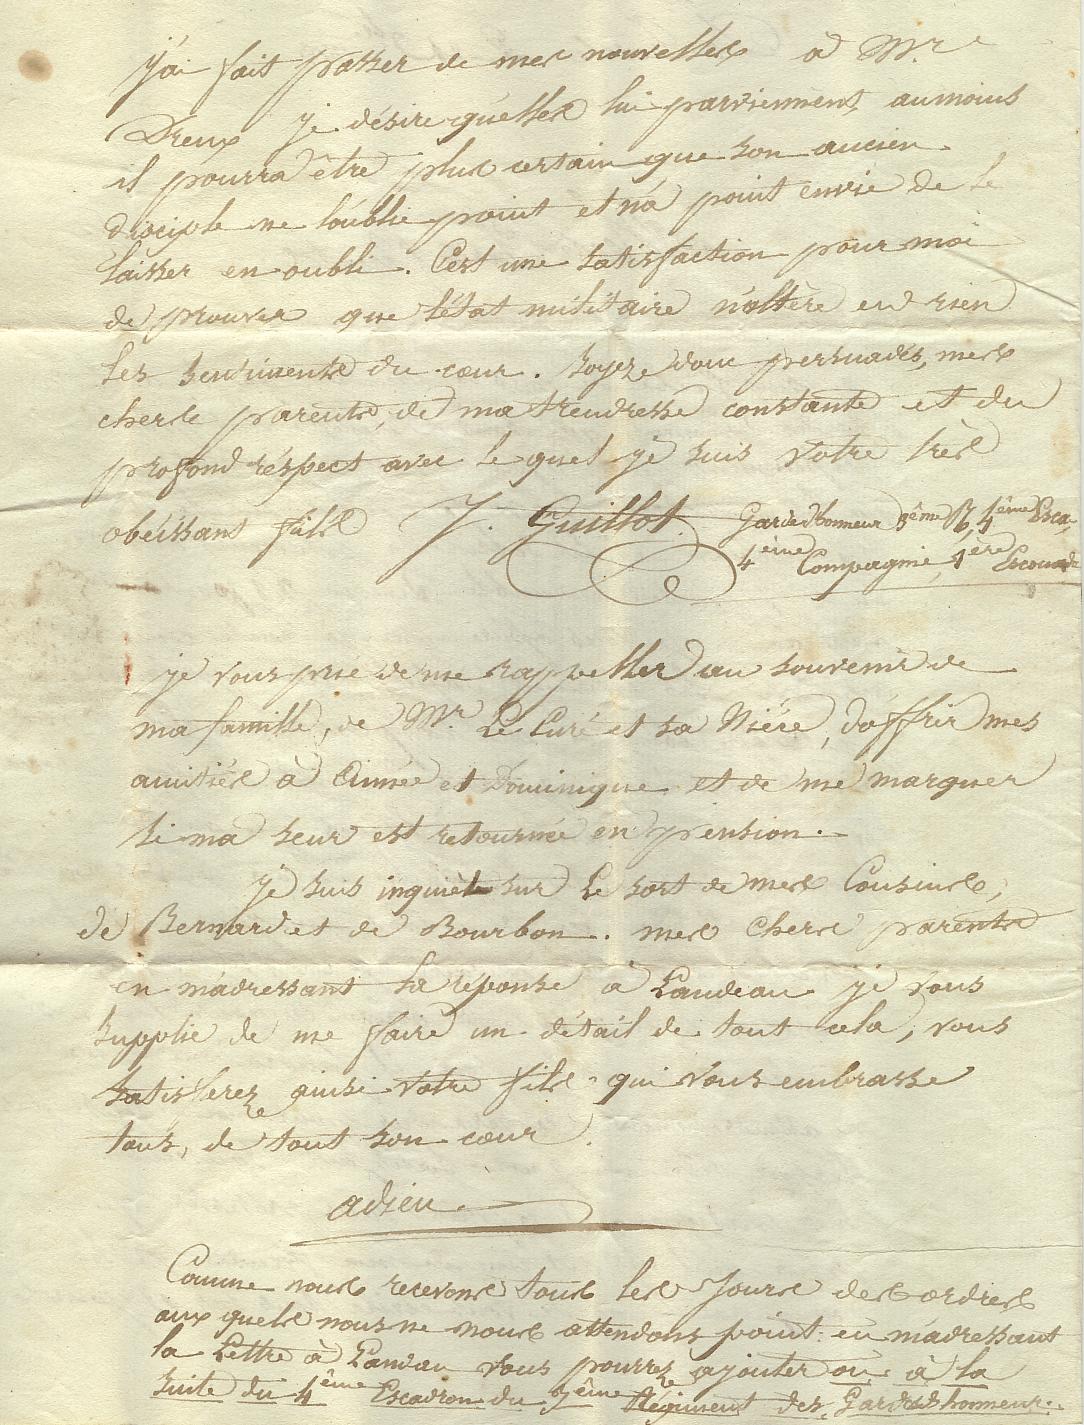 j'ai fait passer de mes nouvelles a Mr.
Dreux je désire qu'elles lui parviennent, aumoins
il pourra être plus certain que son ancien
disciple ne l'oublie point et n'a point envie de le
laisser en oubli. C'est une satisfaction pour moi
de prouver que l'état militaire n'altère en rien
les sentiments du cœur. soyez donc persuadés, mes
chers parents, de ma tendresse constante et du
profond réspect avec le quel je suis votre très
obéissant fils J. Guillot. Garde d'honneur 3ème R, 4ème Esca,
4ème Compagnie, 1ère Escouade
je vous prie de me rappeller au souvenir de
ma famille, de Mr. Le Curé et sa Nièce, d'offrir mes
amitiés à Aimée et Dominique et de me marquer
si ma seur est retournée en pension.
je suis inquiet sur le sort de mes Cousins,
de Bernard et de Bourbon. mes chers parents
en m'adressant la réponse à Landeau je vous
supplie de me faire un détail de tout cela, vous
satisferez ainsi votre fils qui vous embrasse
tous, de tout son cœur.
adieu
Comme nous recevons tous les Jours des ordres
aux quels nous ne nous attendons point: en m'adressant
la Lettre à Landau vous pourrez ajouter ou à la
suite du 4ème Escadron du 3ème Régiment des Gardes d'honneur.